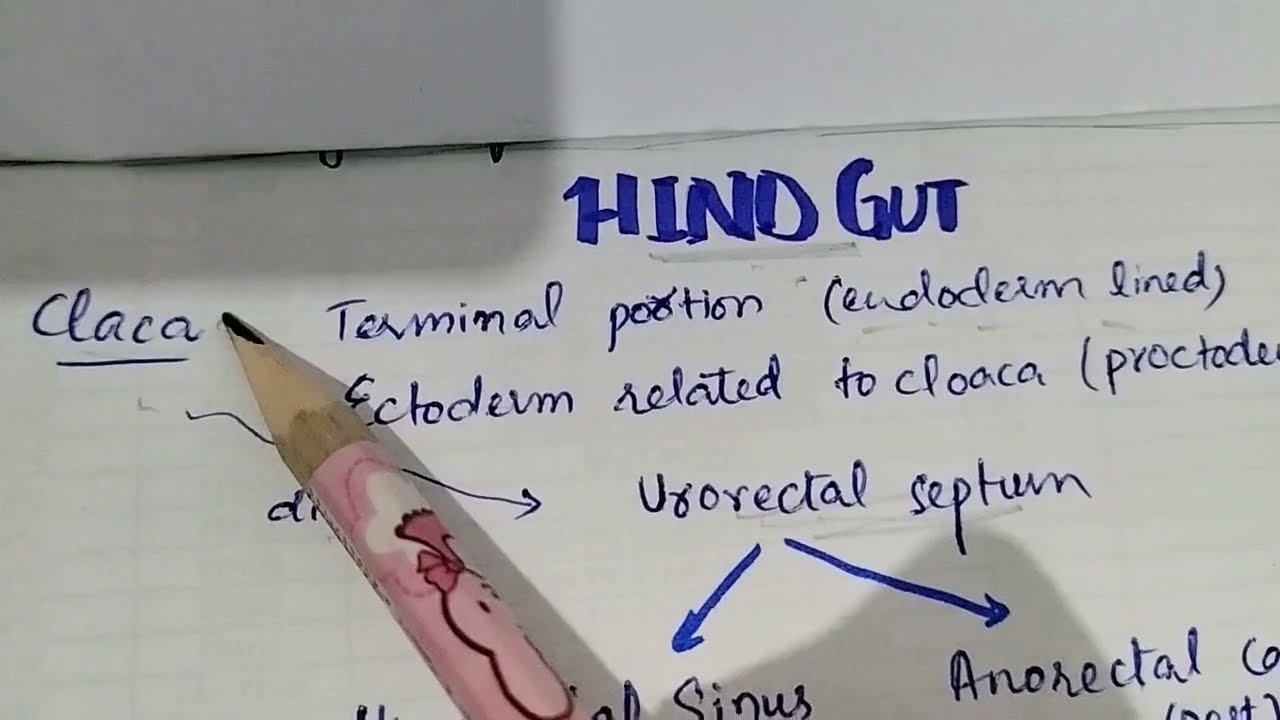 HIND GUT
Claca Terminal portion (endoderm lined)
Ectoderm related to cloaca (proctode
di
Urorectal septum
Sinus Anorectal